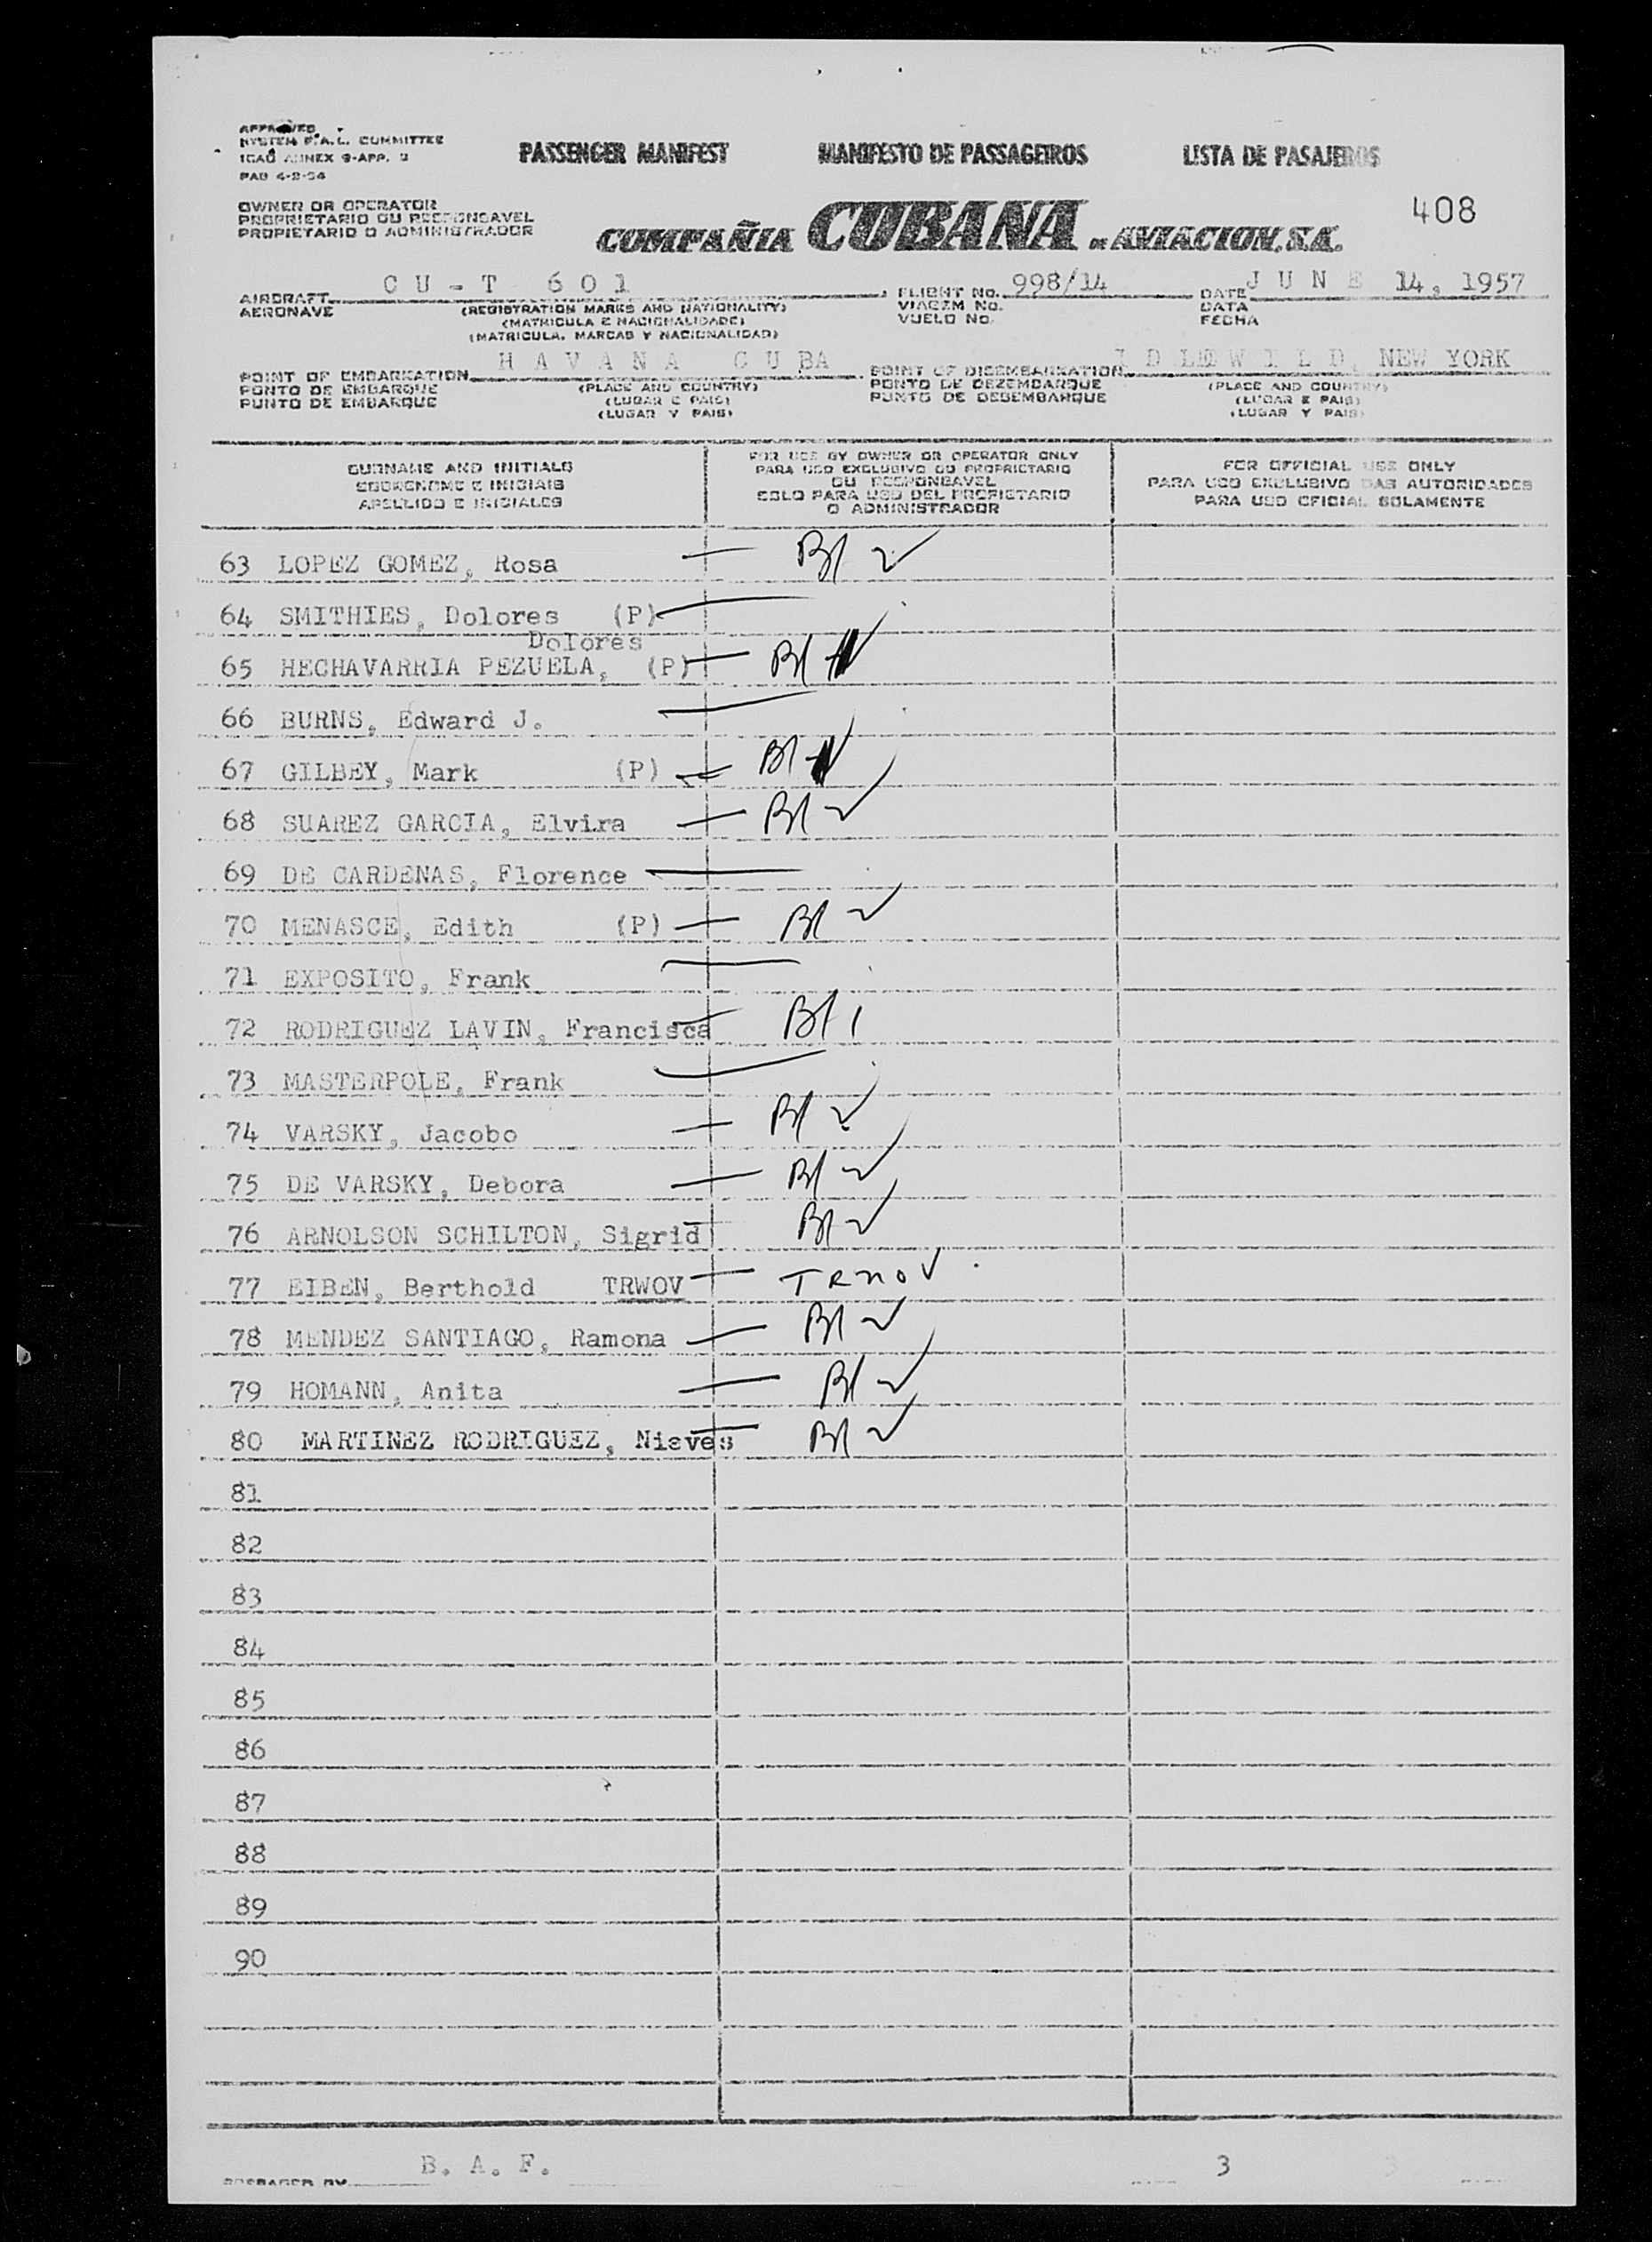 APPROVED
SYSTEM F.A.L. COMMITTEE
ICAO ANNEX 9-APP. 3
PAB 4-2-54
PASSENGER MANIFEST MANIFESTO DE PASSAGEIROS LISTA DE PASAJEROS
OWNER OR OPERATOR
PROPRIETARIO OU RESPONSAVEL
PROPIETARIO O ADMINISTRADOR
COMPAÑIA CUBANA DE AVIACION, S.A.
408
AIRCRAFT CU-T 601 FLIGHT No. 998/14 DATE JUNE 14, 1957
AERONAVE (REGISTRATION MARKS AND NATIONALITY) VIAGEM No. DATA
(MATRICULA E NACIONALIDADE) VUELO No. FECHA
(MATRICULA, MARCAS Y NACIONALIDAD)
POINT OF EMBARKATION HAVANA CUBA POINT OF DISEMBARKATION IDLEWILD, NEW YORK
PONTO DE EMBARQUE (PLACE AND COUNTRY) PONTO DE DEZEMBARQUE (PLACE AND COUNTRY)
PUNTO DE EMBARQUE (LUGAR E PAIS) PUNTO DE DESEMBARQUE (LUGAR E PAIS)
(LUGAR Y PAIS) (LUGAR Y PAIS)
SURNAME AND INITIALS
SOBRENOME E INICIAIS
APELLIDO E INICIALES
FOR USE BY OWNER OR OPERATOR ONLY
PARA USO EXCLUSIVO DO PROPRIETARIO
OU RESPONSAVEL
SOLO PARA USO DEL PROPIETARIO
O ADMINISTRADOR
FOR OFFICIAL USE ONLY
PARA USO EXCLUSIVO DAS AUTORIDADES
PARA USO OFICIAL SOLAMENTE
63 LOPEZ GOMEZ, Rosa B/ 2
64 SMITHIES, Dolores (P)
Dolores
65 HECHAVARRIA PEZUELA, (P) B/
66 BURNS, Edward J.
67 GILBEY, Mark (P) B/
68 SUAREZ GARCIA, Elvira B/ 2
69 DE CARDENAS, Florence
70 MENASCE, Edith (P) B/ 2
71 EXPOSITO, Frank
72 RODRIGUEZ LAVIN, Francisca B/ 1
73 MASTERPOLE, Frank
74 VARSKY, Jacobo B/ 2
75 DE VARSKY, Debora B/ 2
76 ARNOLSON SCHILTON, Sigrid B/ 2
77 EIBEN, Berthold TRWOV TRWOV
78 MENDEZ SANTIAGO, Ramona B/ 2
79 HOMANN, Anita B/ 2
80 MARTINEZ RODRIGUEZ, Nieves B/ 2
81
82
83
84
85
86
87
88
89
90
PREPARED BY B. A. F. 3